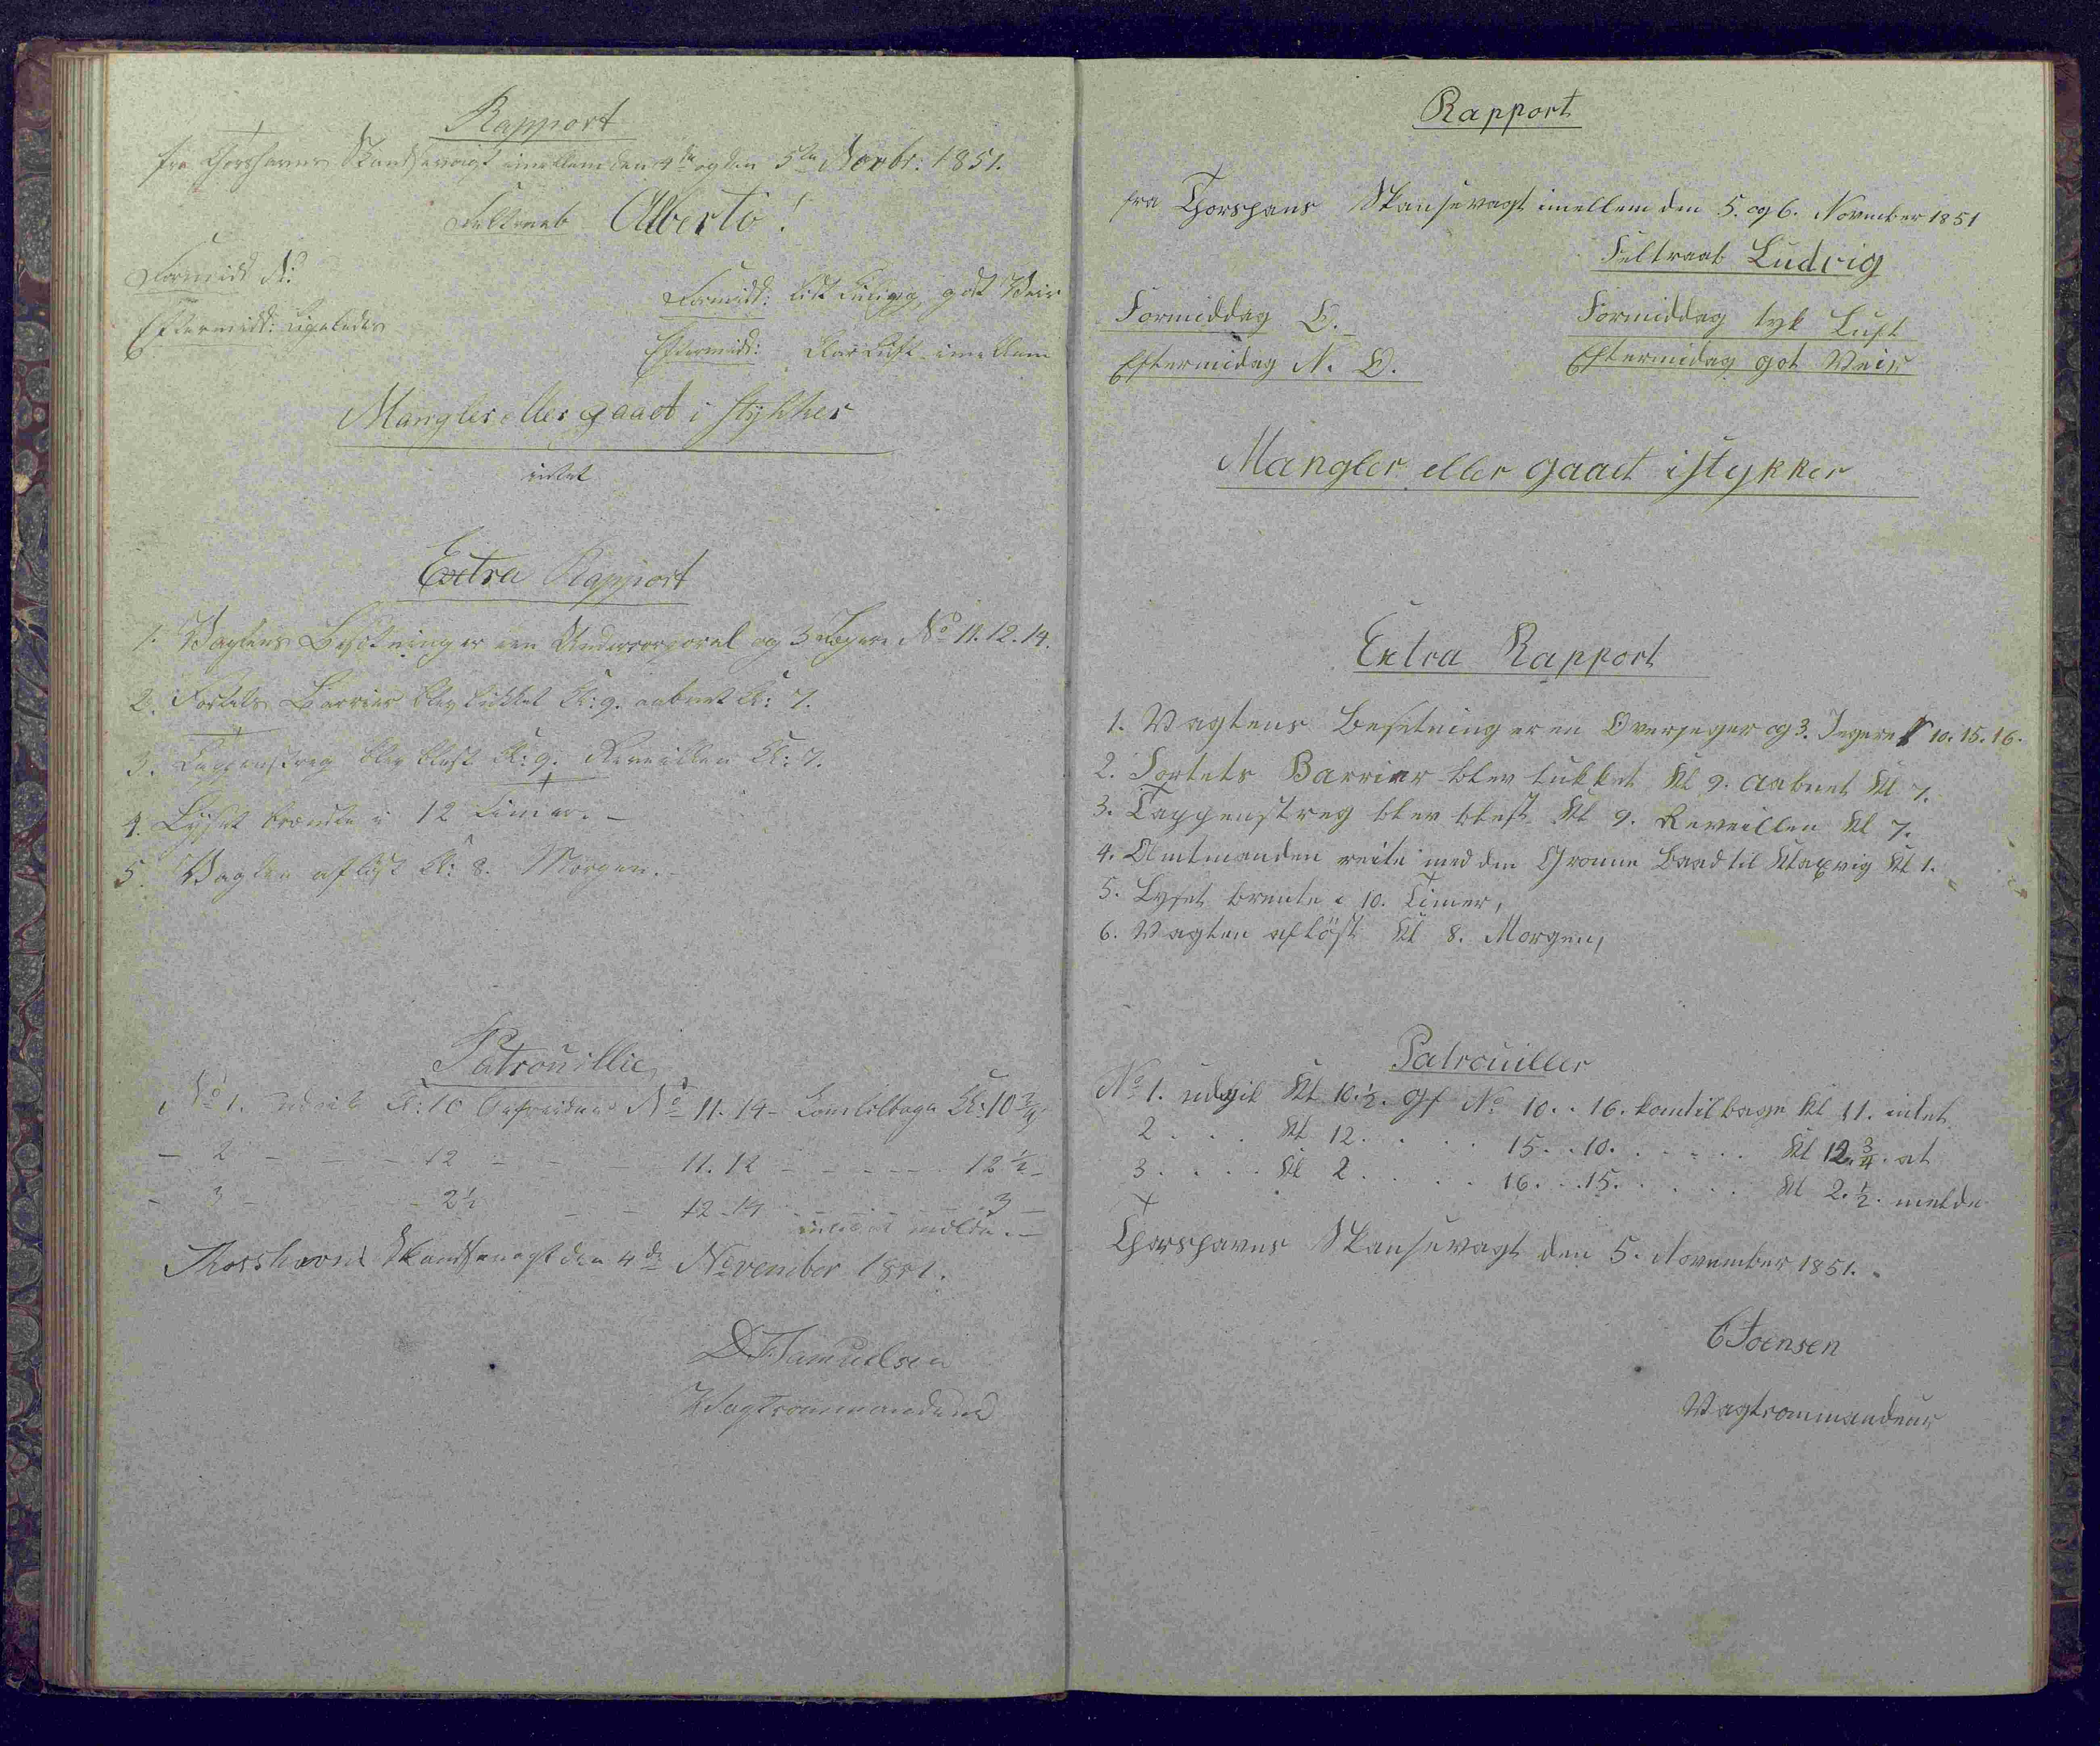 Rapport
fra Thorshavns Skandsevagt imellem den 4de og den 5te Novbr: 1851.
Feltraab Alberto!
Formidd N:
Eftermidd: Ligeledes
Formidd: lidt Luftig godt Veir
Eftermidd: klar Luft imellem
Mangler eller gaaet i stykker
intet
Extra Rapport
1. Vagtens Besætning er een Undercorporal og 3 Jægere No 11. 12. 14.
2. Fortets Barrier blev lukket Kl: 9. aabnet Kl: 7.
3. Tappenstreg blev blæst Kl: 9. Reveillen Kl: 7.
4. Lyset brændte i 12 Timer. -
5. Vagten afløst Kl: 8. Morgen. -
Patrouillie
No 1. udgik Kl: 10 No 11. 14 - kom tilbage Kl: 10 3/4
- 2 - - - 12 - - - 11. 12 - - - - - 12 1/2 -
- 3 - - - 2 1/2 - - 12 - 14 - - - - - 3 -
melde. -
Thorshavns Skandsevagt den 4de November 1851.
D. Samuelsen
Vagtcommandeur
Rapport
fra Thorshans Skansevagt imellem den 5. og 6. November 1851
Feltraab Ludvig
Formiddag O.
Eftermidag N. O.
Formiddag tyk Luft
Eftermidag got Veir
Mangler eller gaaet istykker
Extra Rapport
1. Vagtens Besetning er en Overjeger og 3. Jegere 10. 15. 16.
2. Fortets Barrier blev lukket Kl 9. Aabnet Kl 7.
3. Tappenstreg blev blest Kl 9. Reveillen Kl 7.
4. Amtmanden reiste med den Gronne Baad til Klaxvig Kl 1.
5. Lyset brente i 10. Timer,
6. Vagten aflöst Kl 8. Morgen,
Patrouiller
No 1. udgik Kl 10. 1/2. Gf No 10. . 16. kom tilbage Kl 11. intet
2 . . . Kl 12. . . . . 15. . 10. . . . . . Kl 12. 3/4. at
3. . . . Kl 2 . . . . . 16. . 15. . . . . . Kl 2. 1/2. melde
Thorshavns Skansevagt den 5. November 1851.
C Joensen
Vagtcommandeur